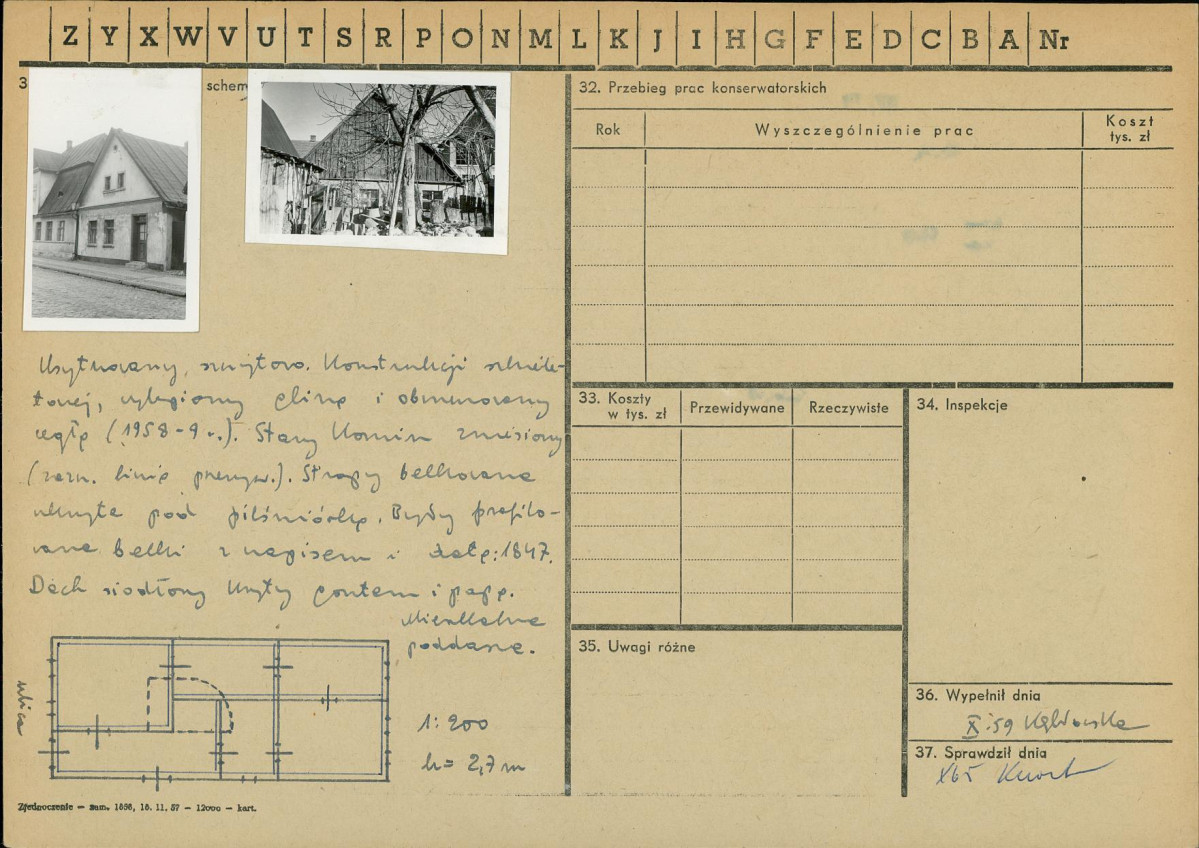 Z Y X W V U T S R P O N M L K J I H G F E D C B A Nr
3
schem
Usytuowany szczytowo. Konstrukcji szkiele-
towej, wylepiony gliną i obmurowany
cegłą (1958-9 r.). Stary komin zniesiony
(zazn. linią przeryw.). Stropy belkowane
ukryte pod pilśniówką. Były profilo-
wane belki z napisem i datą: 1847.
Dach siodłowy kryty gontem i papą.
Mieszkalne
poddasze.
ulica
1:200
h = 2,7 m
Zjednoczenie — zam. 1898, 18. 11. 57 — 12000 — kart.
32. Przebieg prac konserwatorskich
Rok
Wyszczególnienie prac
Koszt
tys. zł
33. Koszty
w tys. zł
Przewidywane
Rzeczywiste
34. Inspekcje
35. Uwagi różne
36. Wypełnił dnia
X.59
37. Sprawdził dnia